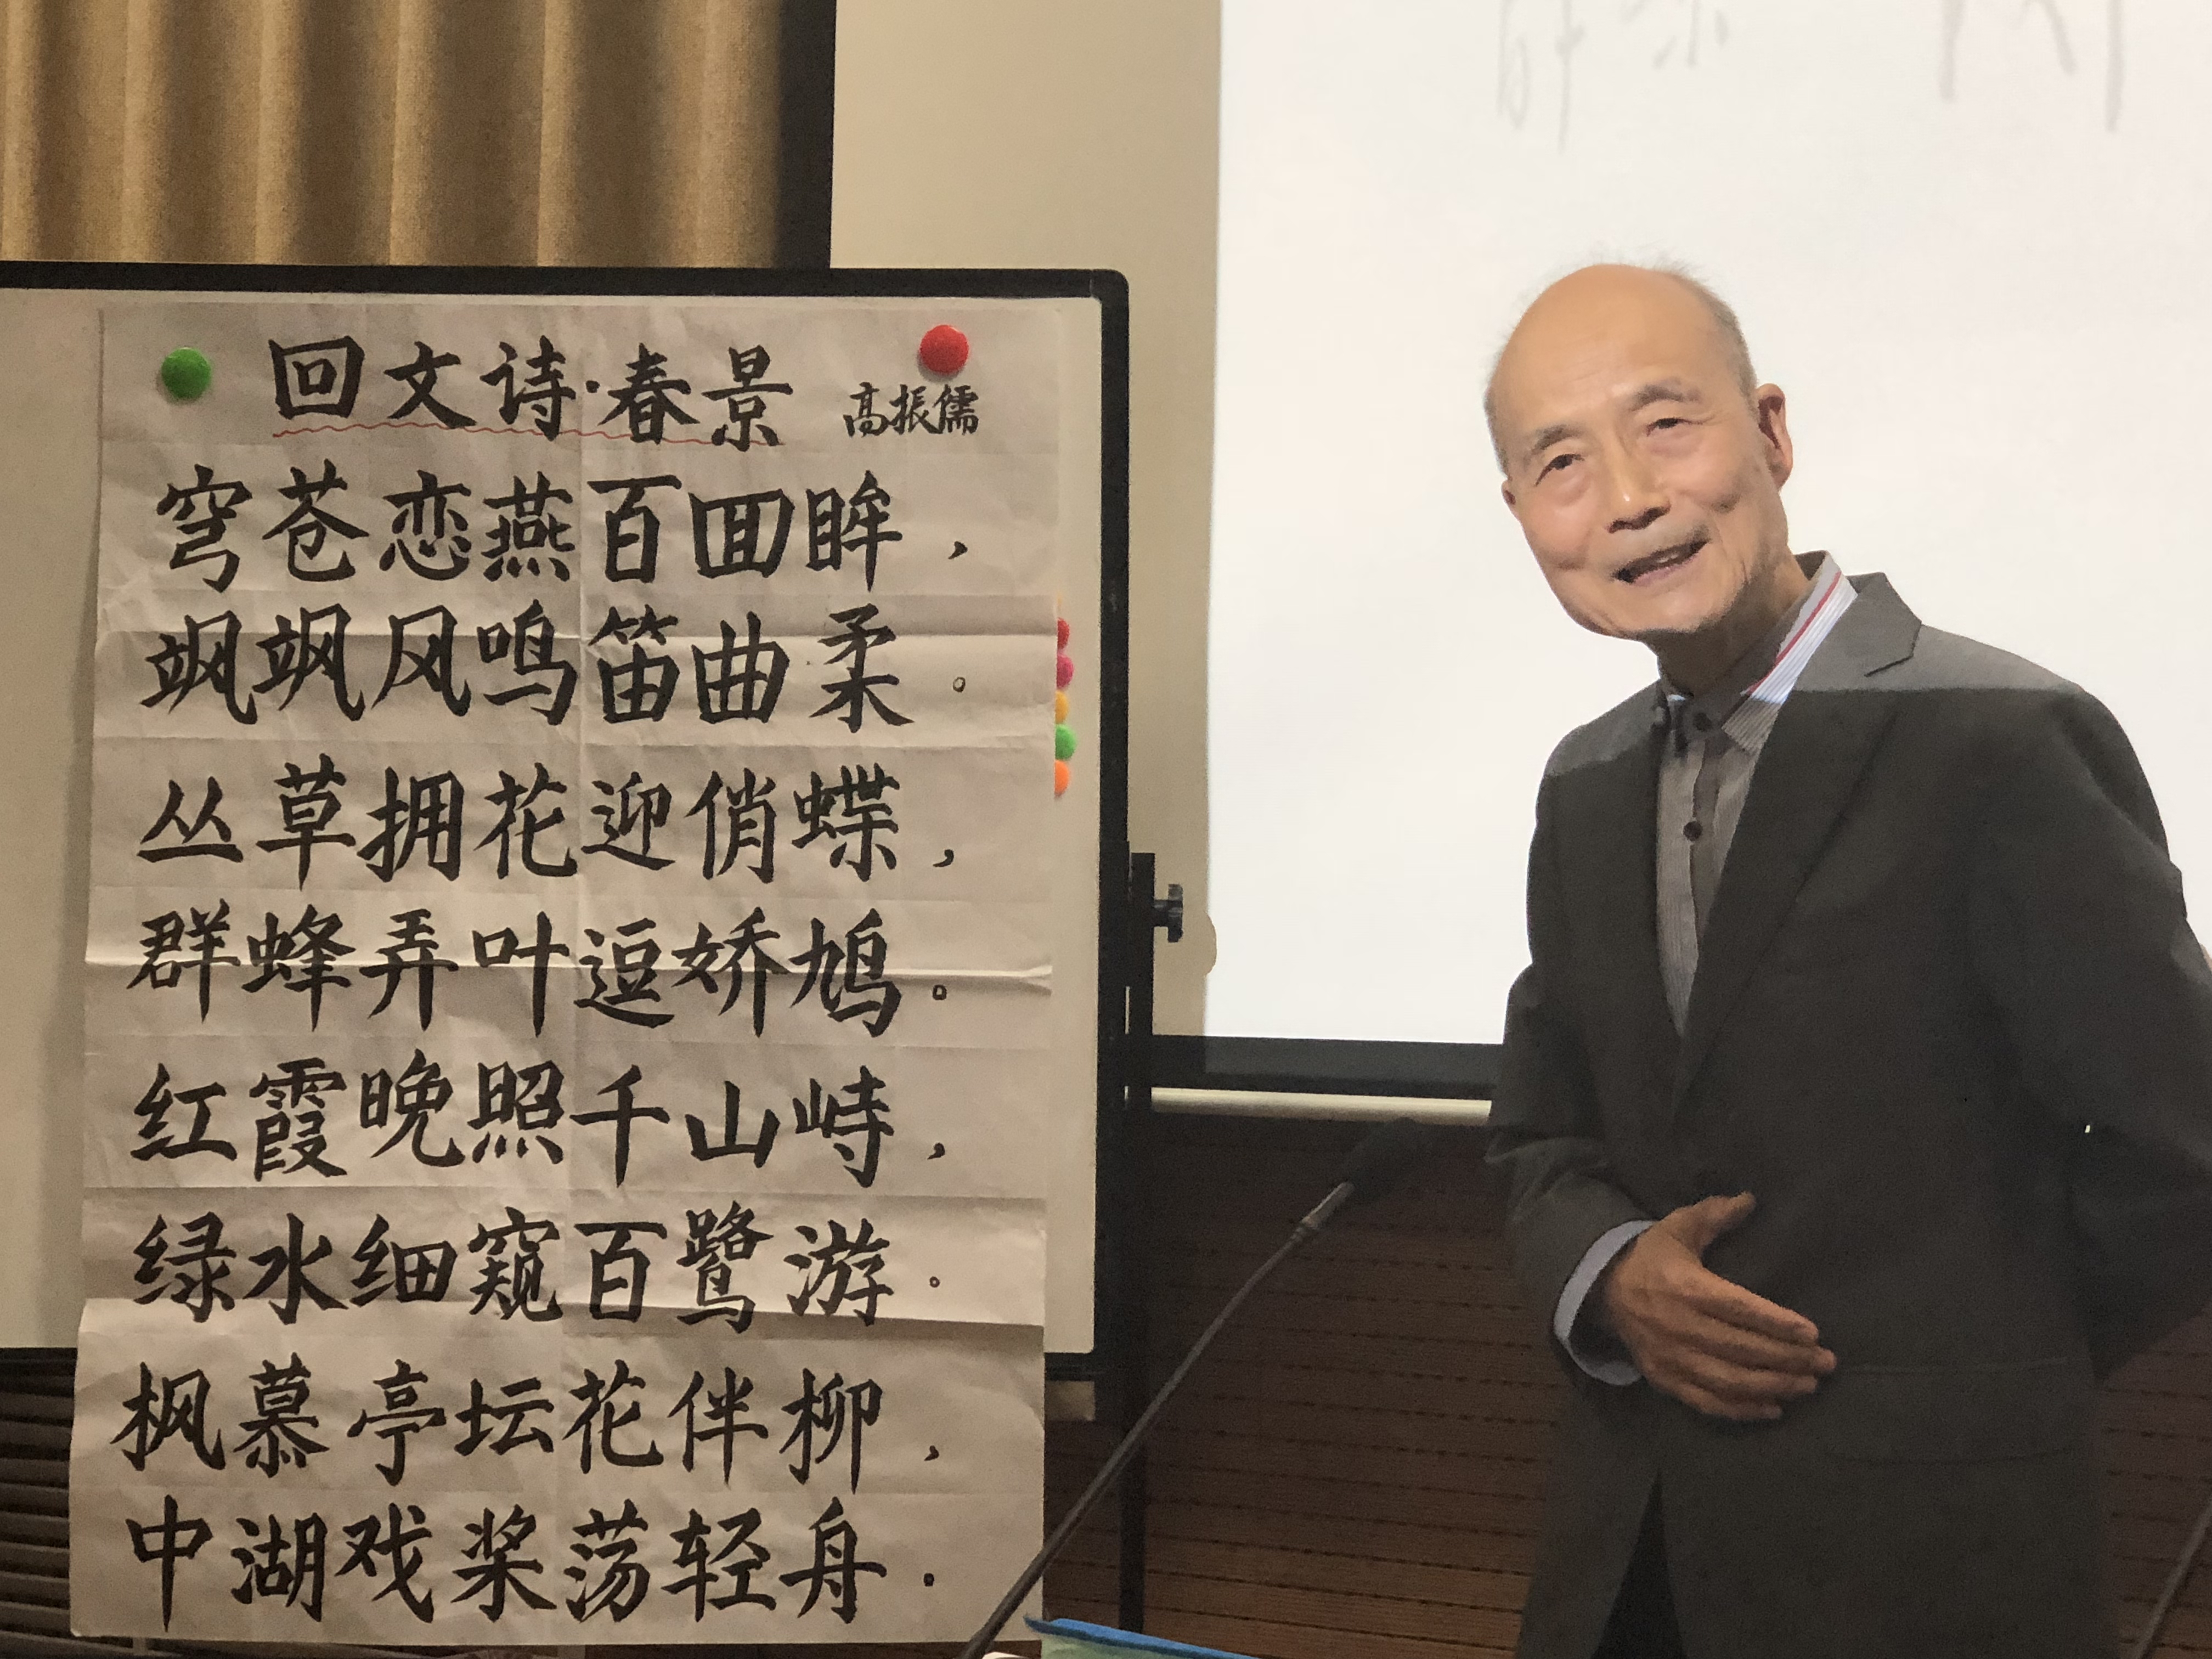 回文诗·春景 高振儒
穹苍恋燕百回眸，
飒飒风鸣笛曲柔。
丛草拥花迎俏蝶，
群蜂弄叶逗娇鸠。
红霞晚照千山峙，
绿水细窥百鹭游。
枫慕亭坛花伴柳，
中湖戏桨荡轻舟.